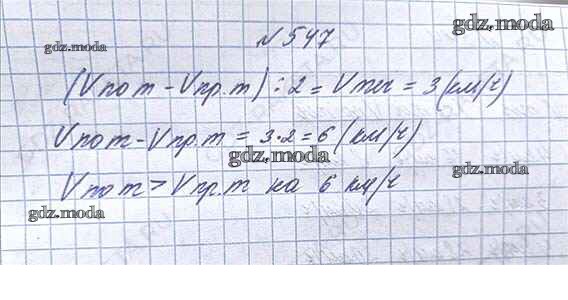 gdz.moda
№547
gdz.moda
(Vпот - Vпр.т) : 2 = Vтеч = 3 (км/ч)
Vпот - Vпр.т = 3·2 = 6 (км/ч)
gdz.moda
gdz.moda
Vпот > Vпр.т на 6 км/ч
gdz.moda